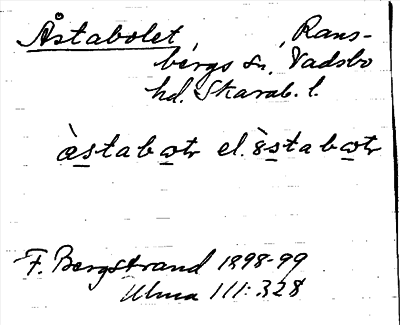 Åstabolet Rans-
bergs sn, Vadsbo
hd. Skarab. l.
àstabɷtr el. ɛ̀stabɷtr
F. Bergstrand 1898-99
Ulma 111:328